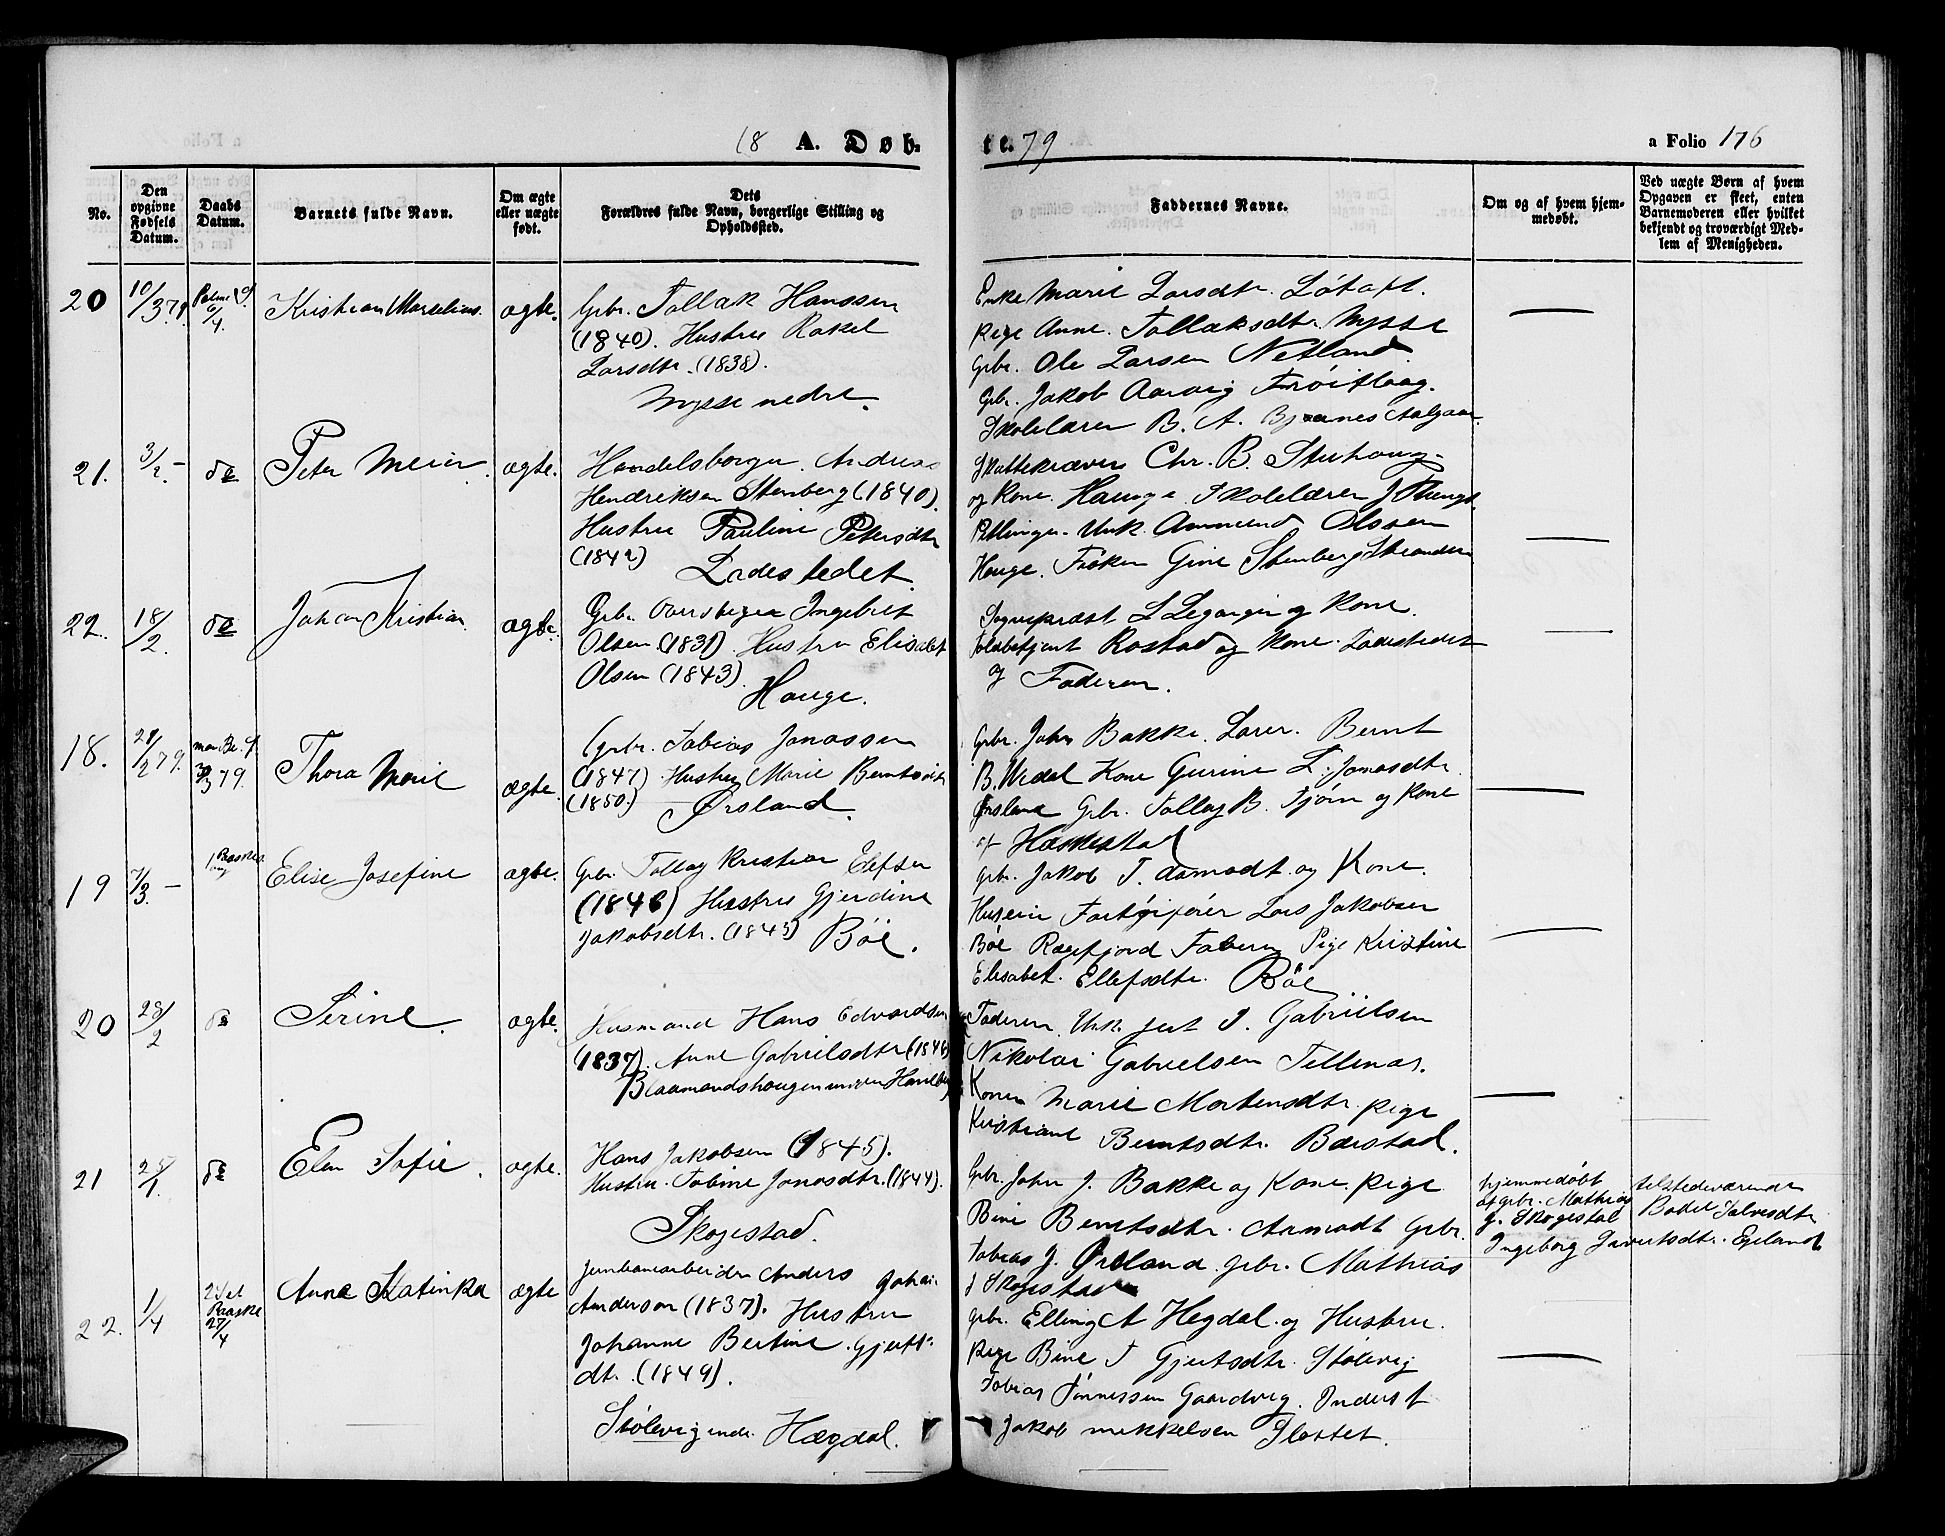 18 A. Døb-
te. 79
a Folio 176
No.
Den opgivne Fødsels Datum.
Daabs Datum.
Barnets fulde Navn.
Om ægte eller uægte født.
Dets Forældres fulde Navn, borgerlige Stilling og Opholdssted.
Faddernes Navne.
Om og af hvem hjemmedøbt.
Ved uægte Børn af hvem Opgaven er skeet, enten Barnemoderen eller hvilket bekjendt og troværdigt Medlem af Menigheden.
20 10/3 79. Palme S. 6/4. Kristian Marselius. ægte.
Gbr. Tollak Hanssen
(1840). Hustru Rakel
Larsdtr. (1838).
Mysse nedre.
Enke Marie Larsdtr. Løtoft.
Pige Anne Tollaksdtr. Mysse
Gbr. Ole Larsen Netland
Gbr. Jakob Aarvig Frøitlaag.
Skolelærer B. A. Bjørnes Aalgaar
21. 3/2 - do Peter Meier. ægte.
Handelsborger. Andreas
Hendriksen Stenberg (1840).
Hustru Pauline Petersdtr
(1842)
Ladestedet.
Skattekræver Chr. B. Stuhaug
og Kone. Hauge. Skolelærer J.
Ellinger. Unk. Ammund Olssen
Hauge. Frøken Gine Stenberg Stranden
22. 18/2. do Johan Kristian. ægte.
Gbr. Ingebret
Olsen (1831). Hustru Elisabet
Olsen (1843).
Hauge.
Sognepræst L. og Kone.
Toldbetjent Rostad og Kone. Ladestedet
og Faderen.
18. 21/2 79. Mar. Be. f. 79. Thora Marie ægte.
Gbr. Tobias Jonassen
(1847) Hustru Marie Berntsdtr
(1850.) Ørsland.
Gbr. John Bakke. Lærer. Bernt
B. Kone Gurine L. Jonasdtr.
Ørsland Gbr. Tollag B. Tjørn og Kone
af Hæskestad
19 7/3. - 1 Paaske Elise Josefine ægte.
Gbr. Tollag Kristian Elefsen
(1846) Hustru Gjerdine
Jakobsdtr. (1845) Bøe.
Gbr. Jakob T. Aamodt og Kone.
Huseim Fartøifører Lars Jakobsen
Bøe Rægefjord Pige Kristine
Elisabet. Ellefsdtr. Bøe
20 28/2 do Serine. ægte.
Husmand Hans Edvardsen
(1837). Anne Gabrielsdtr (1846)
Blaamandshaugen under Hanlberg
Faderen. Unk. Gert T. Gabrielsen
Nikolai Gabrielsen Tellenæs.
Konen Marie Mortensdtr. Pige
Kristiane Berntsdtr. Bærstad.
21 25/1. do Elen Sofie. ægte.
Hans Jakobsen (1845).
Hustru. Tobine Jonasdtr. (1844).
Skogestad.
Gbr. John J. Bakke og Kone. Pige
Bine Berntsdtr. Aamodt Gbr.
Tobias J. Ørsland. Gbr. Mathias
J. Skogestad
Hjemmedøbt
af Gbr. Mathias
J. Skogestad
tilstedeværende
Bodel Salvesdtr
Ingeborg Sivertsdtr. Egeland
22. 1/4 2den Paaske 27/4 Anne Katinka ægte
Jernbanearbeider Anders Johan
Anderson (1837). Hustru
Johanne Bertine Gjerts-
dtr. (1849).
Stølevig under Hægdal.
Gbr. Elling A. Hegdal. og Hustru.
Pige Bine T. Gjertsdtr. Stølevig
Tobias Tønnessen Gaardvig. Anders T
Jakob Mikkelsen Slettet.